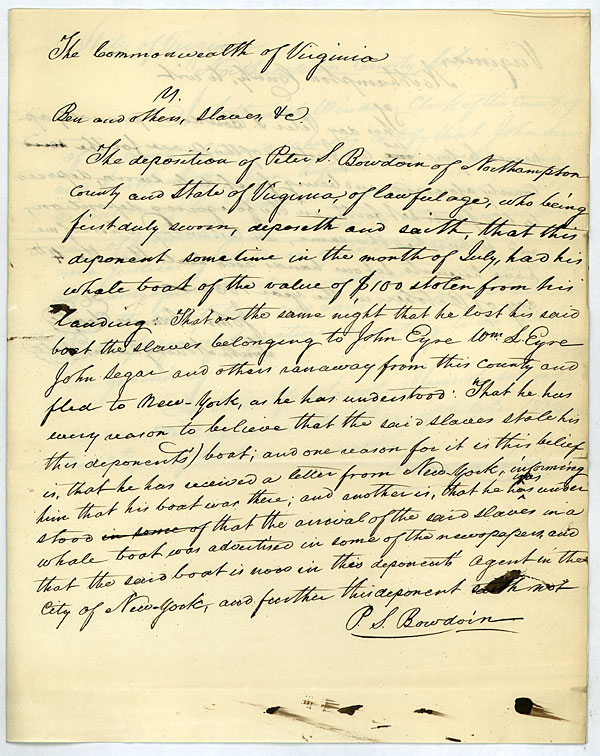 The Commonwealth of Virginia
v.
Ben and others, slaves, &c.
The deposition of Peter S. Bowdoin of Northampton
County and State of Virginia, of lawful age, who being
first duly sworn, deposeth and saith, that this
deponent sometime in the month of July, had his
whale boat of the value of $100 stolen from his
Landing: That on the same night that he lost his said
boat the slaves belonging to John Eyre Wm. L. Eyre
John Segar and others ranaway from this county and
fled to New-York, as he has understood: That he has
every reason to believe that the said slaves stole his
(this deponents') boat; and one reason for it is this belief
is, that he has received a letter from New-York, informing
him that his boat was there; and another is, that he has under
stood in some of that the arrival of the said slaves in a
whale boat was advertised in some of the newspapers, and
that the said boat is now in this deponents' agent in the
City of New-York, and further this deponent saith not
P. S. Bowdoin